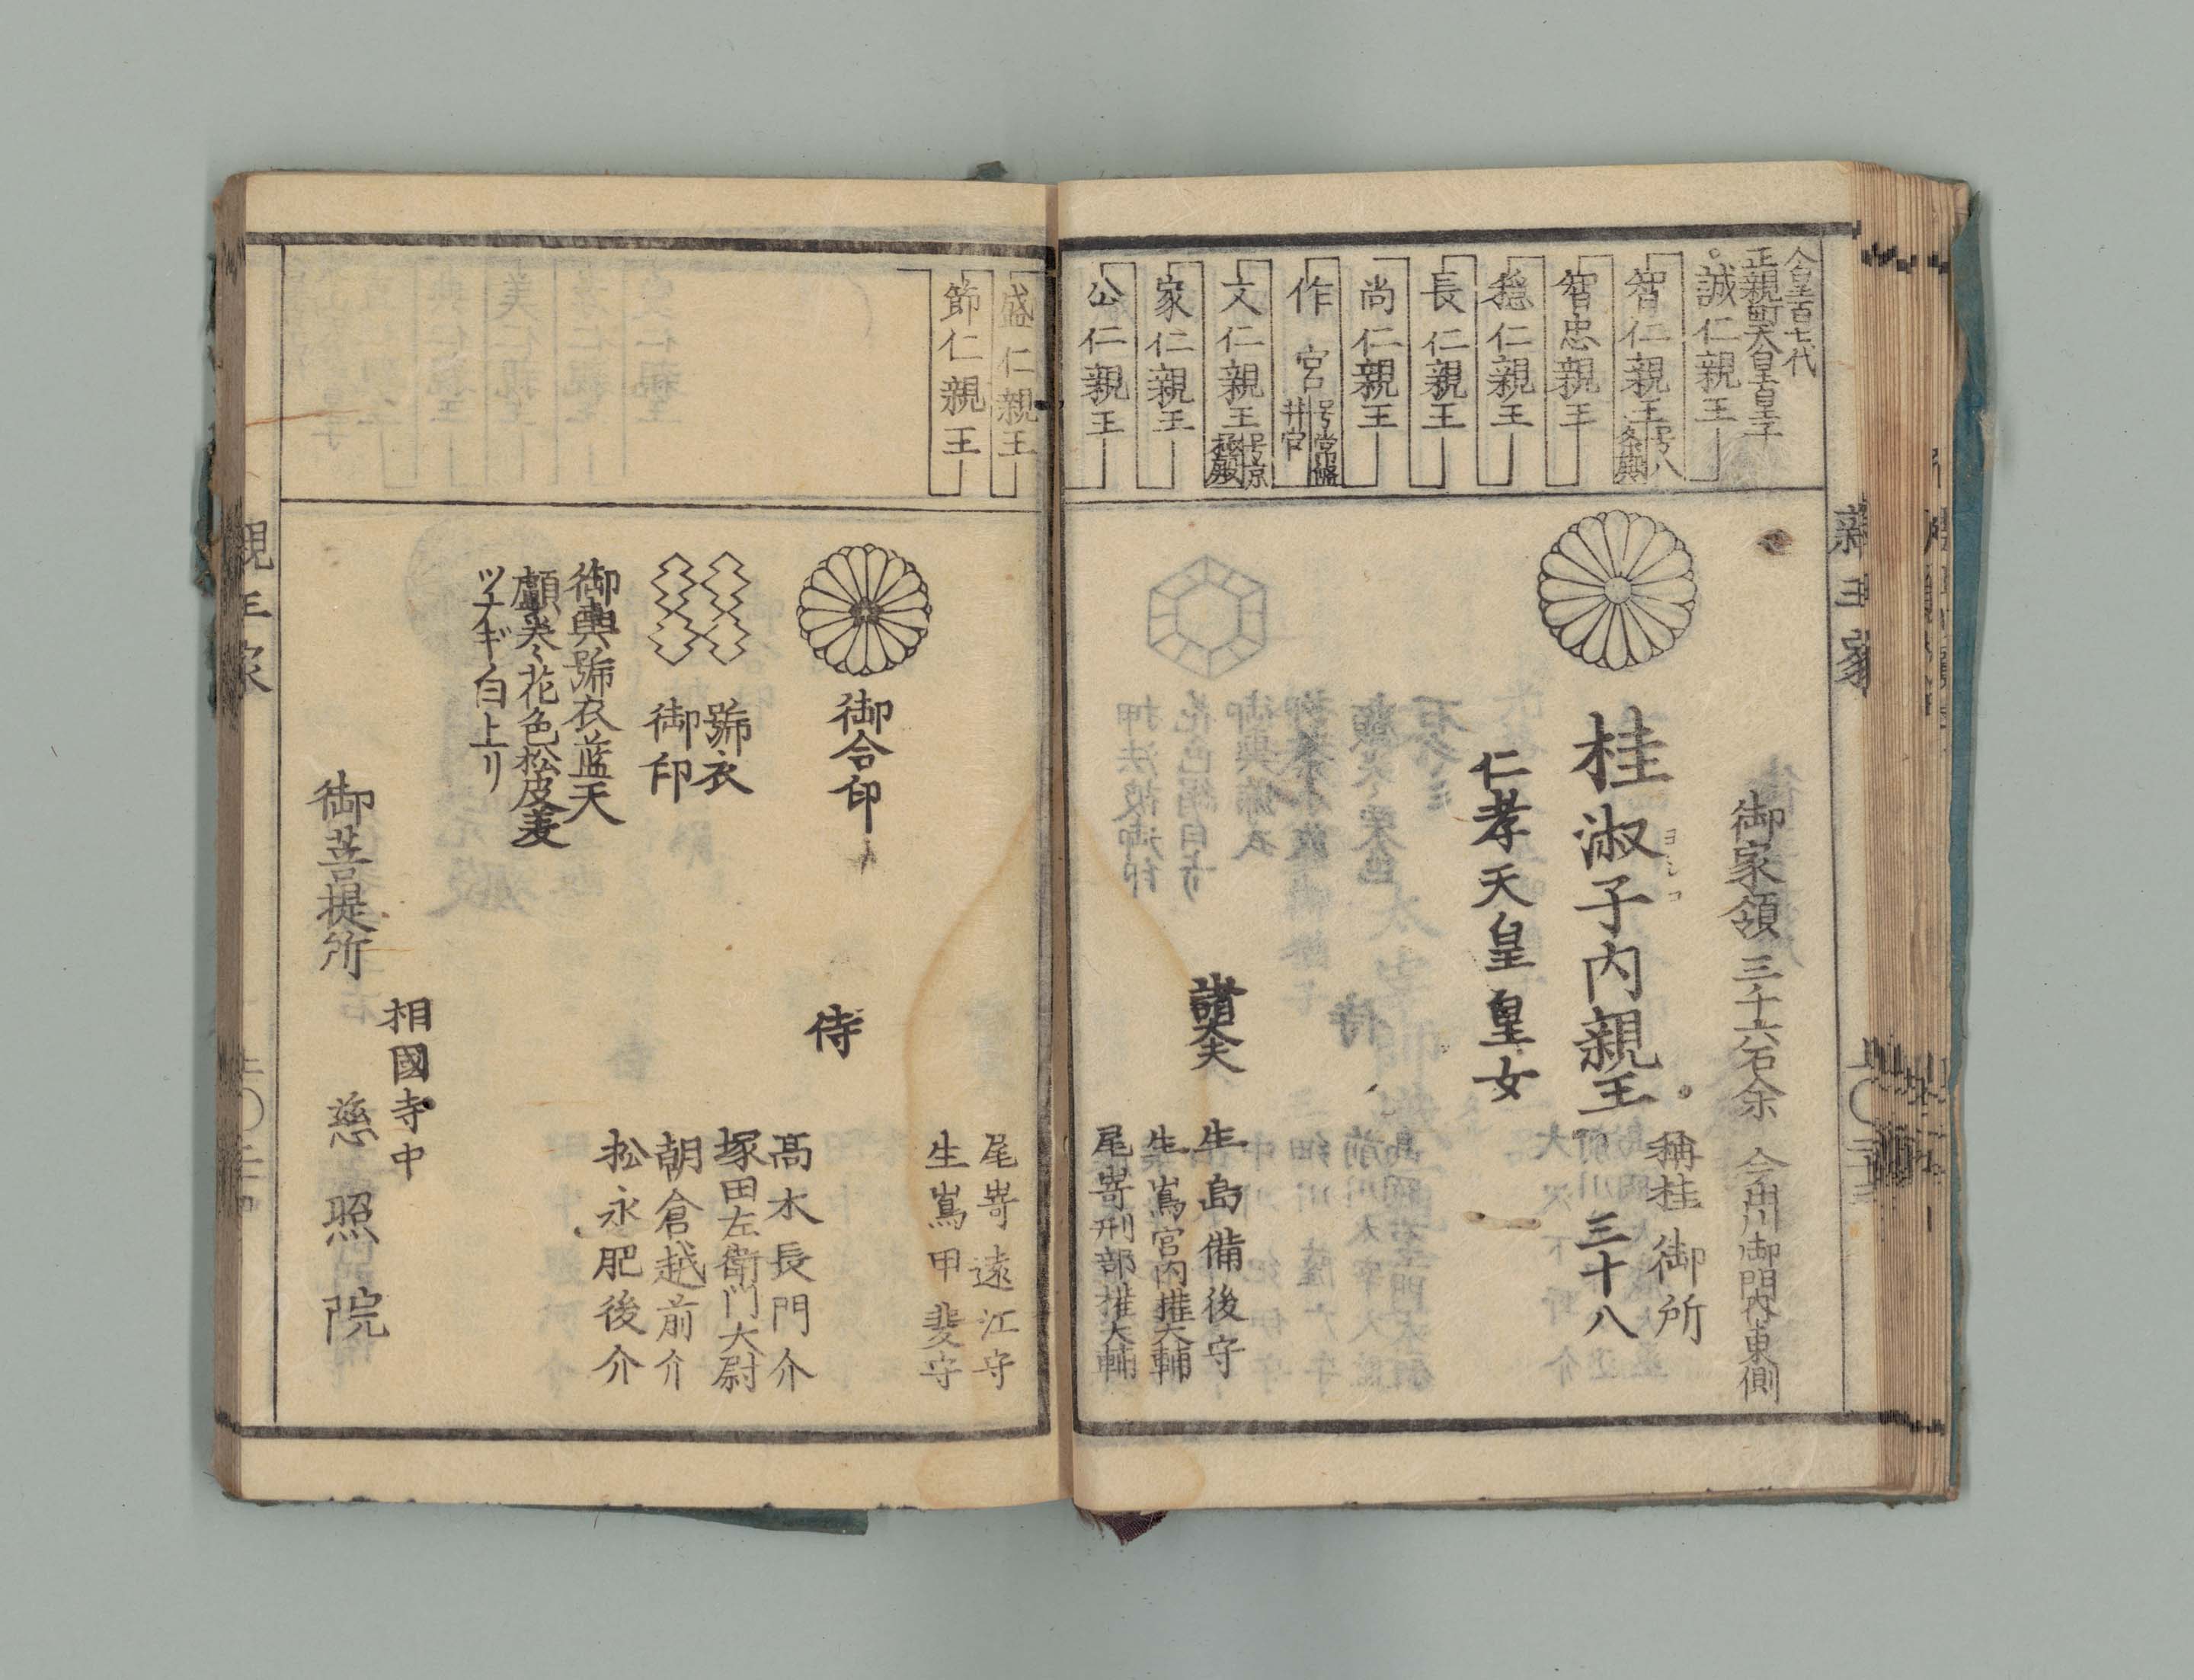 人皇百七代
正親町天皇皇子
誠仁親王
智仁親王 号八条殿
智忠親王
穏仁親王
長仁親王
尚仁親王
作宮 号常磐井宮
文仁親王 号京極殿
家仁親王
公仁親王
御家領三千六石余 今出川御門内東側
桂淑子内親王
ヨシコ
称桂御所
三十八
仁孝天皇皇女
諸大夫
生島備後守
生嶌宮内権大輔
尾嵜刑部権大輔
親王家
盛仁親王
節仁親王
尾嵜遠江守
生嶌甲斐守
御合印
侍
高木長門介
塚田左衛門大尉
朝倉越前介
松永肥後介
号衣
御印
御輿号衣藍天
顱巻花色松皮菱
ツナギ白上リ
相國寺中
御菩提所 慈照院
親王家